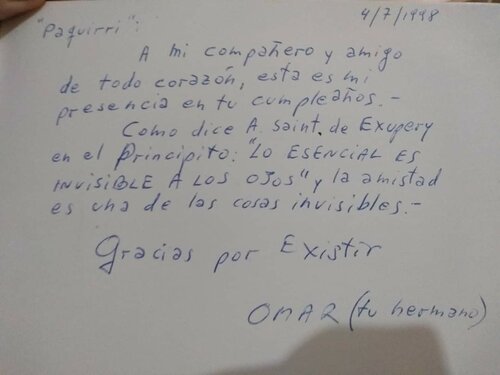 4/7/1998
"Paquirri":
A mi compañero y amigo
de todo corazón, esta es mi
presencia en tu cumpleaños.-
Como dice A. Saint. de Exupery
en el Principito: "LO ESENCIAL ES
INVISIBLE A LOS OJOS" y la amistad
es una de las cosas invisibles.-
Gracias por Existir
OMAR (tu hermano)